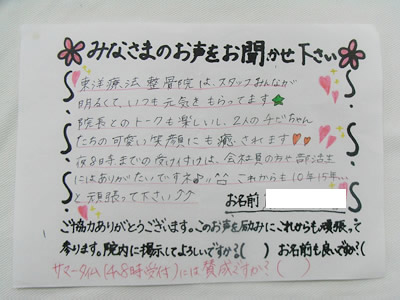 みなさまのお声をお聞かせ下さい
東洋療法整骨院は、スタッフみんなが
明るくて、いつも元気をもらってます
院長とのトークも楽しいし、2人のチビちゃん
たちの可愛い笑顔にも癒されます
夜8時までの受け付けは、会社員の方や部活生
にはありがたいですネ♪ これからも10年15年…
と頑張って下さい
お名前
ご協力ありがとうございます。このお声を励みにこれからも頑張って
参ります。院内に掲示してよろしいですか?( ) お名前も良いですか?(
サマータイム(4:8時受付)には賛成ですか?( )